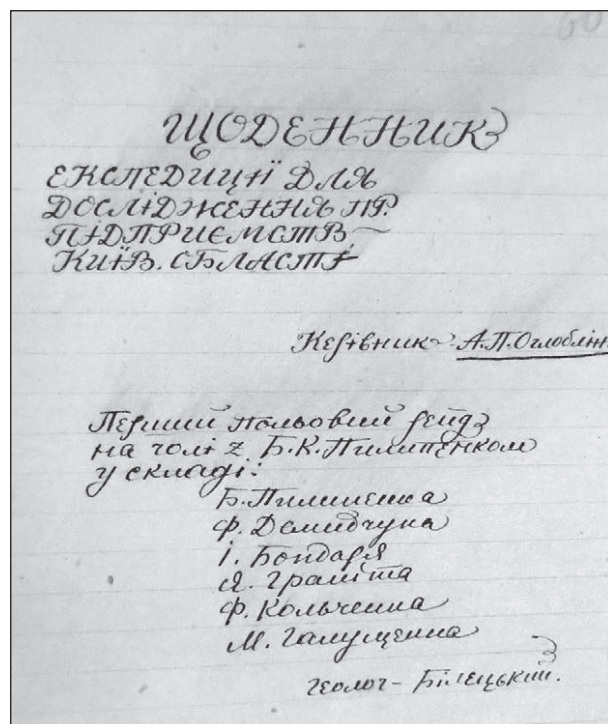 60
ЩОДЕННИК
ЕКСПЕДИЦІЇ ДЛЯ
ДОСЛІДЖЕННЯ ПР.
ПІДПРИЄМСТВ
КИЇВ. ОБЛАСТІ
Керівник - А.П.Оглоблін
Перший польовий рейд
на чолі з Б.К.Пилипенком
у складі:
Б.Пилипенка
Ф. Демидчука
І. Бондаря
Я. Граміта
Ф. Кольченка
М. Галущенка
геолог - Білецький.